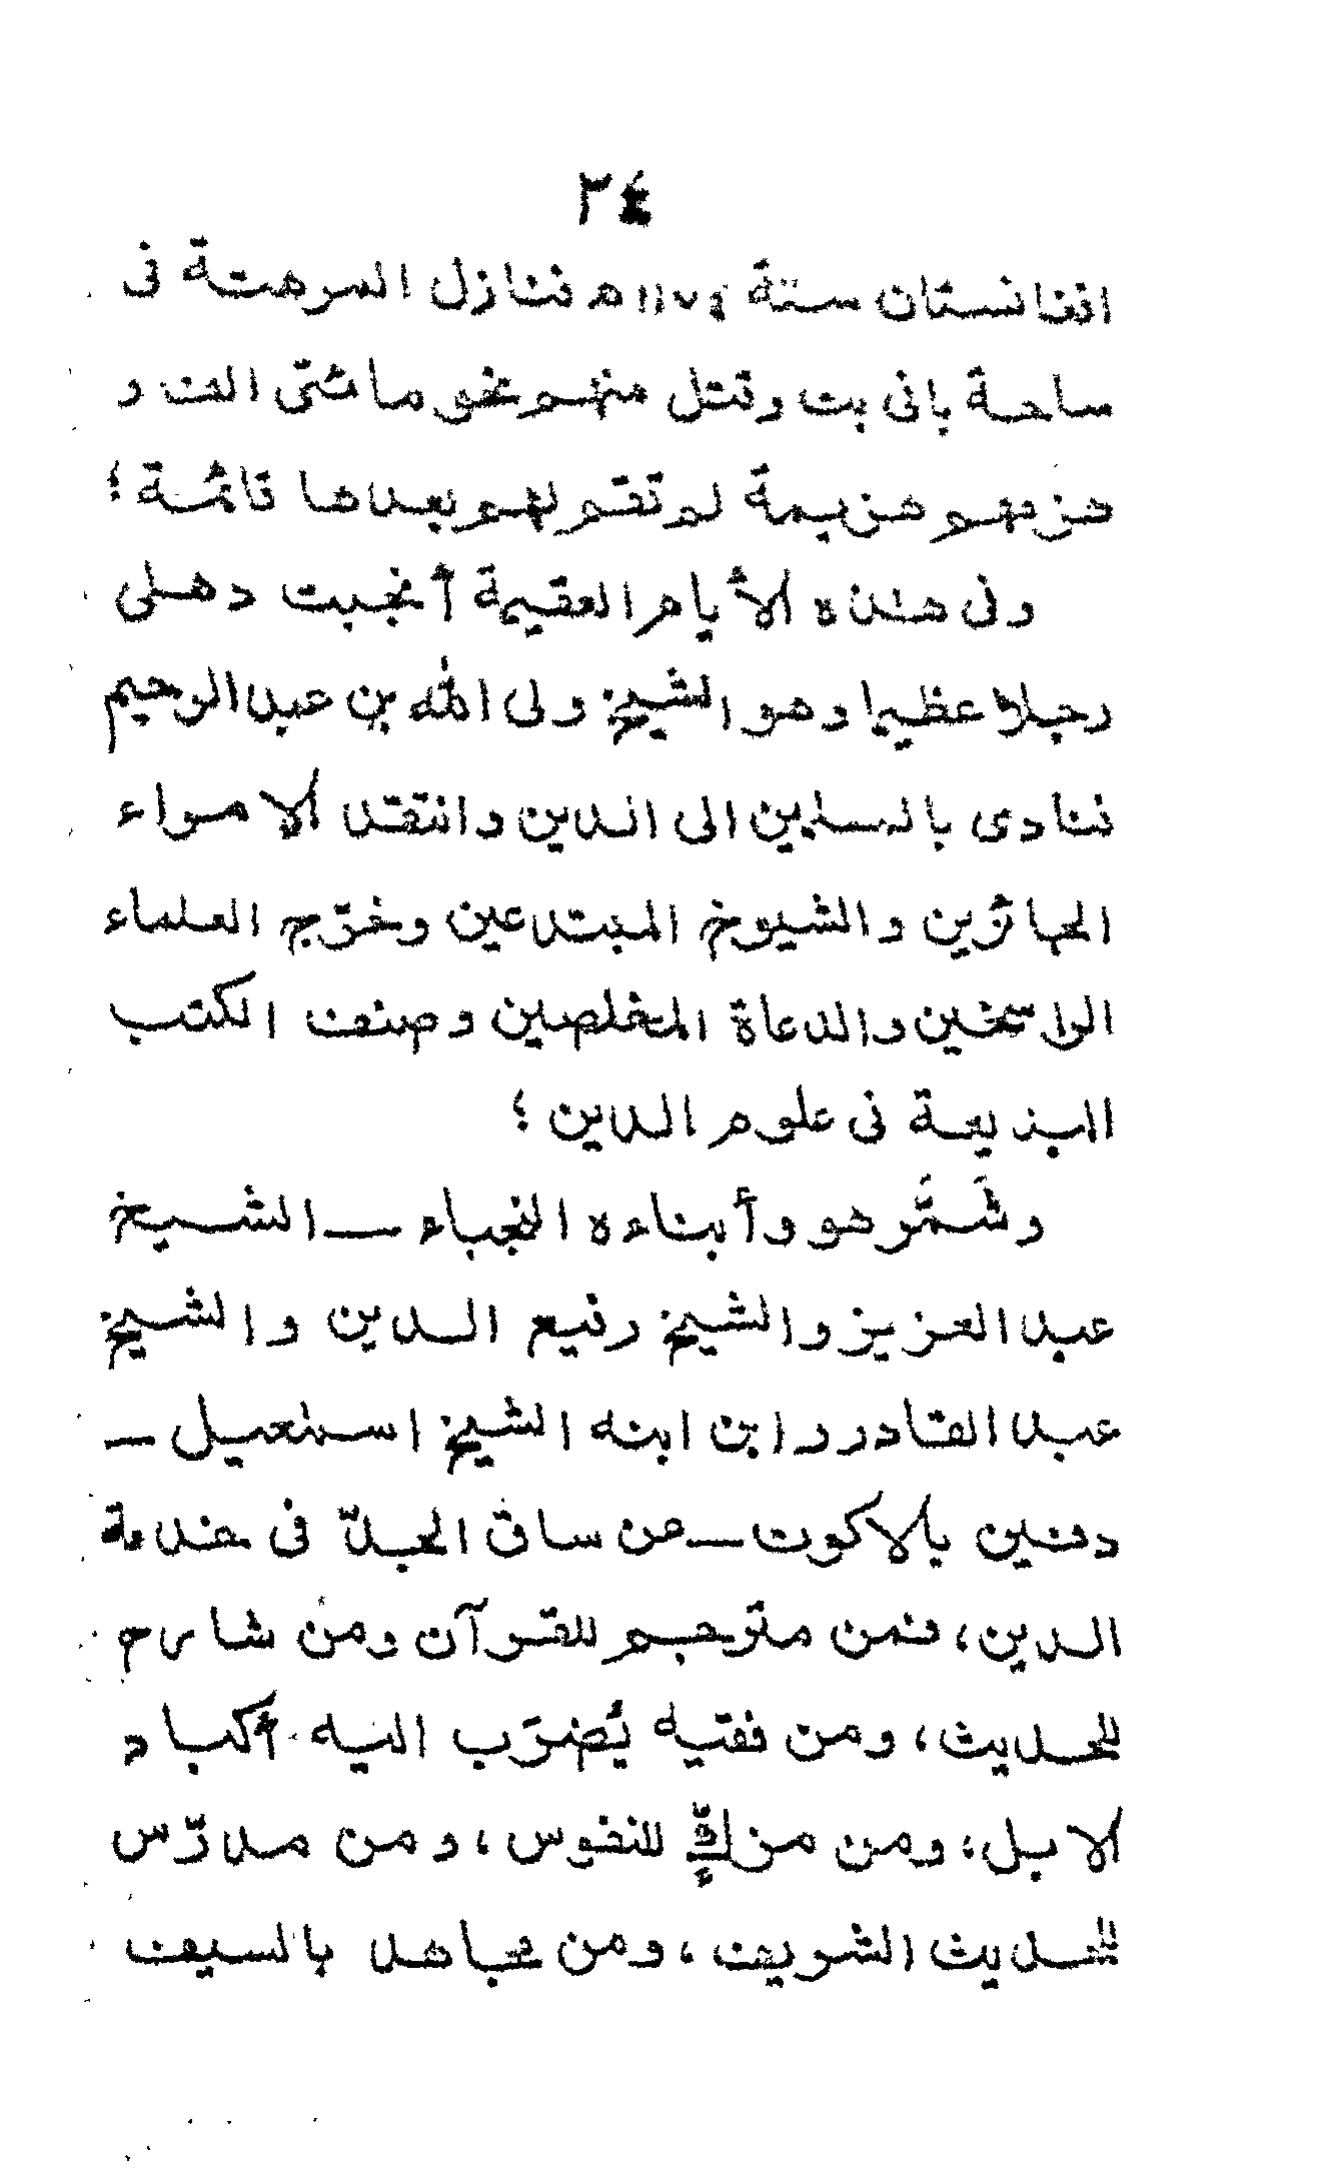 ٣٤
افغانستان سنة ١١٧٤ ه فنازل المرهتة فى
ساحة بانى بت وقتل منهم نحو مائتى الف و
هزمهم هزيمة لم تقم لهم بعدها قائمة ؛
وفى هذه الأيام العقيمة أنجبت دهلى
رجلا عظيما وهو الشيخ ولى الله بن عبد الرحيم
فنادى بالمسلمين الى الدين وانتقد الامراء
الجائرين والشيوخ المبتدعين وخرّج العلماء
الراسخين والدعاة المخلصين وصنف الكتب
البديعة فى علوم الدين ؛
وشَمَّر هو وأبناءه النجباء ــ الشيخ
عبد العزيز والشيخ رفيع الدين والشيخ
عبد القادر وابن ابنه الشيخ اسمٰعيل ــ
دفين بالاكوت ــ عن ساق الجدّ فى خدمة
الدين، فمن مترجم للقرآن ومن شارح
للحديث، ومن فقيه يُضرَب اليه أكباد
الابل، ومن مزكٍّ للنفوس، ومن مدرّس
للحديث الشريف، ومن مجاهد بالسيف